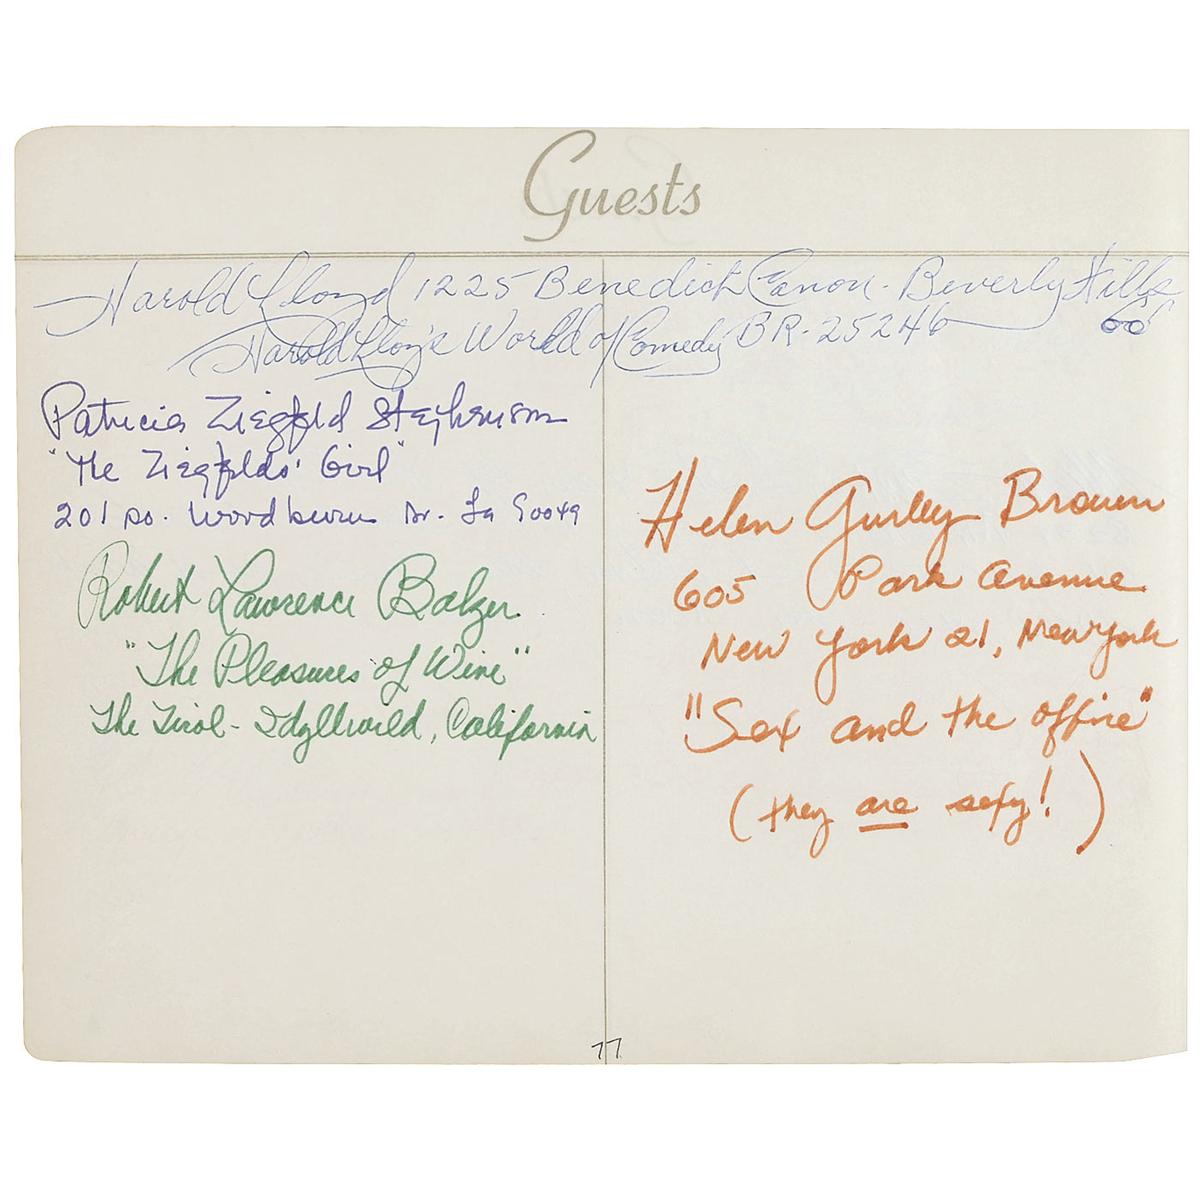 Guests
Harold Lloyd 1225 Benedict Canon - Beverly Hills
Harold Lloyd's World of Comedy BR-25246
Patricia Ziegfeld Stephenson
"The Ziegfelds' Girl"
201 so. Woodburn Dr. La 90049
Robert Lawrence Balzer
"The Pleasures of Wine"
The Tirol - Idyllwild, California
Helen Gurley Brown
605 Park Avenue
New York 21, New York
"Sex and the office"
(they are sexy!)
77